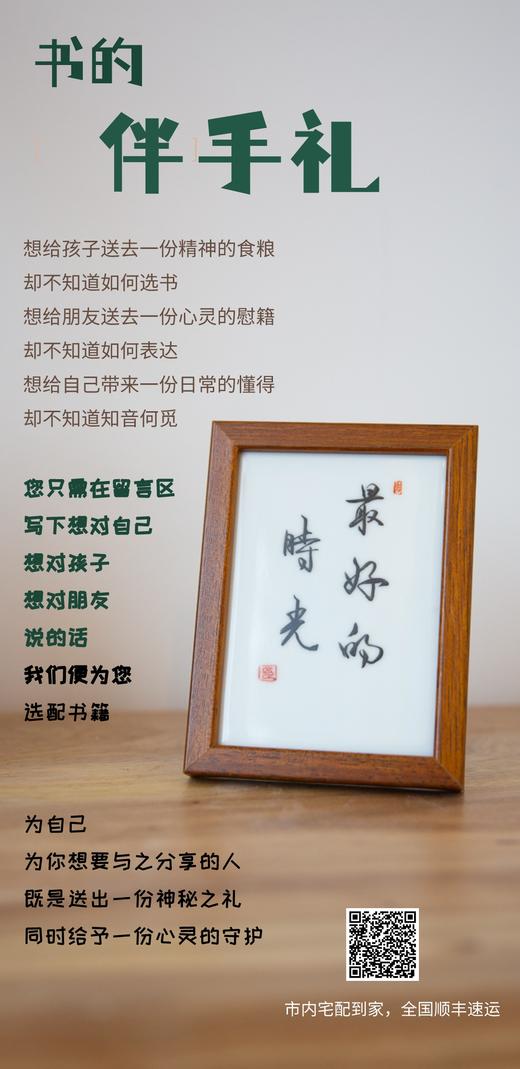 书的
伴手礼
想给孩子送去一份精神的食粮
却不知道如何选书
想给朋友送去一份心灵的慰籍
却不知道如何表达
想给自己带来一份日常的懂得
却不知道知音何觅
您只需在留言区
写下想对自己
想对孩子
想对朋友
说的话
我们便为您
选配书籍
最好的
時光
为自己
为你想要与之分享的人
既是送出一份神秘之礼
同时给予一份心灵的守护
市内宅配到家，全国顺丰速运